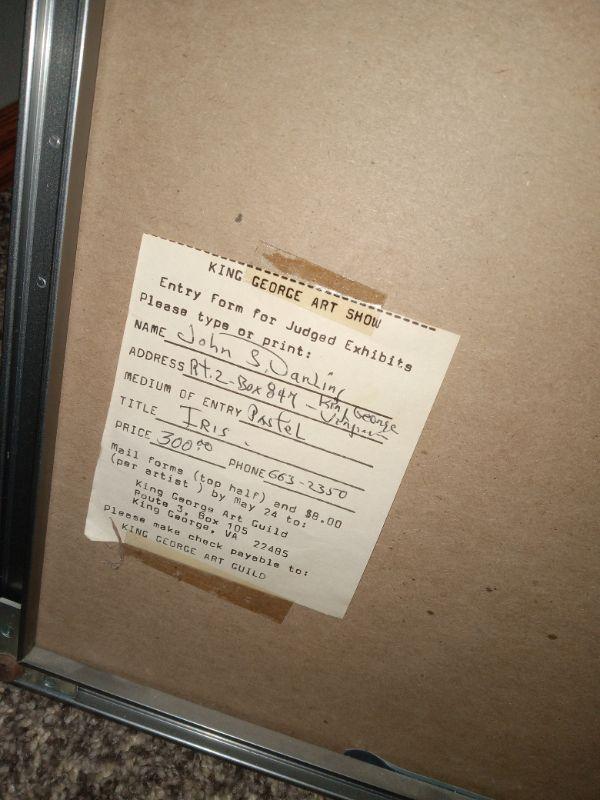 KING GEORGE ART SHOW
Entry Form for Judged Exhibits
Please type or print:
NAME John S. Darling
ADDRESS Rt. 2 - Box 847 - King George
Virginia
MEDIUM OF ENTRY Pastel
TITLE IRIS.
PRICE 300.00 PHONE 663-2350
Mail forms (top half) and $8.00
(per artist ) by May 24 to:
King George Art Guild
Route 3, Box 105
King George, VA 22485
Please make check payable to:
KING GEORGE ART GUILD